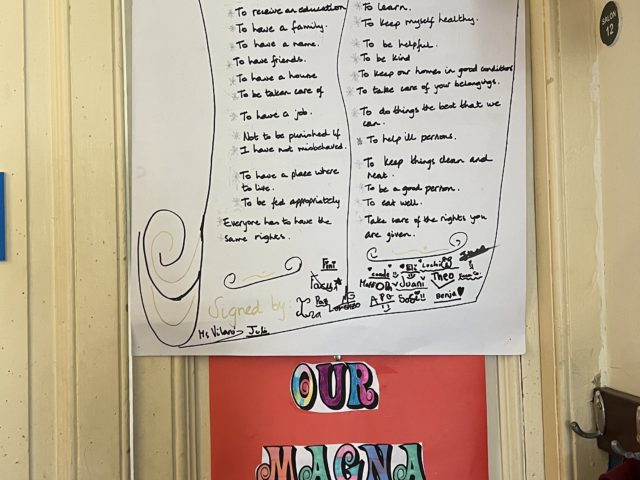 To receive an education
To have a family.
To have a name.
To have friends.
To have a house
To be taken care of
To have a job.
Not to be punished if
I have not misbehaved.
To have a place where
to live.
To be fed appropriately
Everyone has to have the
same rights.
To learn.
To keep myself healthy.
To be helpful.
To be kind
To keep our homes in good condition
To take care of your belongings.
To do things the best that we
can.
To help ill persons.
To keep things clean and
neat.
To be a good person.
To eat well.
Take care of the rights you
are given.
Signed by:
Ms Vilaro
Juli
Fini
Paz
Lorenzo
Juani
Theo
Sofi!!
Benja
OUR
MAGNA
SALON
12